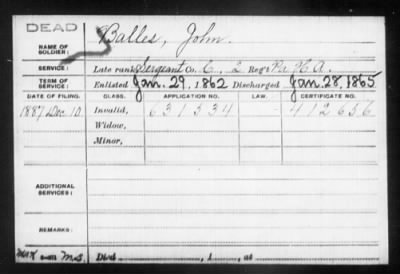 DEAD
NAME OF SOLDIER: Balles, John.
SERVICE: Late rank Sergeant Co. C, 2 Reg't Pa. H. A.
TERM OF SERVICE: Enlisted Jan. 29, 1862 Discharged Jan. 28, 1865
DATE OF FILING. CLASS. APPLICATION NO. LAW. CERTIFICATE NO.
1887 Dec. 10 Invalid, 631334 412656
Widow,
Minor,
ADDITIONAL SERVICES:
REMARKS:
Died , 1 , at